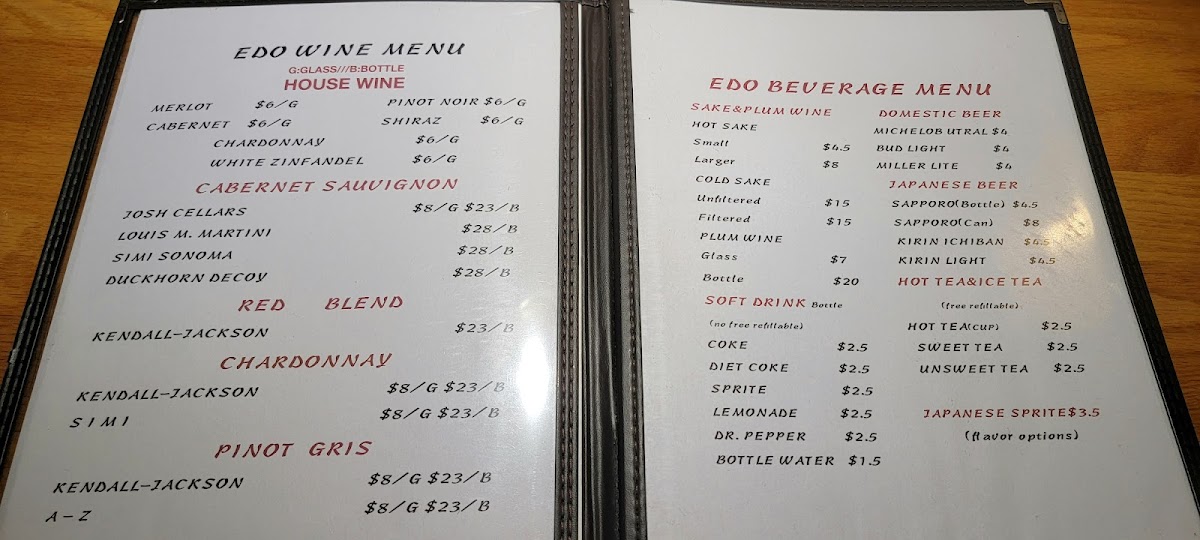 EDO WINE MENU
G:GLASS///B:BOTTLE
HOUSE WINE
MERLOT $6/G PINOT NOIR $6/G
CABERNET $6/G SHIRAZ $6/G
CHARDONNAY $6/G
WHITE ZINFANDEL $6/G
CABERNET SAUVIGNON
JOSH CELLARS $8/G $23/B
LOUIS M. MARTINI $28/B
SIMI SONOMA $28/B
DUCKHORN DECOY $28/B
RED BLEND
KENDALL-JACKSON $23/B
CHARDONNAY
KENDALL-JACKSON $8/G $23/B
SIMI $8/G $23/B
PINOT GRIS
KENDALL-JACKSON $8/G $23/B
A-Z $8/G $23/B
EDO BEVERAGE MENU
SAKE&PLUM WINE
HOT SAKE
Small $4.5
Larger $8
COLD SAKE
Unfiltered $15
Filtered $15
PLUM WINE
Glass $7
Bottle $20
SOFT DRINK Bottle
(no free refillable)
COKE $2.5
DIET COKE $2.5
SPRITE $2.5
LEMONADE $2.5
DR. PEPPER $2.5
BOTTLE WATER $1.5
DOMESTIC BEER
MICHELOB UTRAL $4
BUD LIGHT $4
MILLER LITE $4
JAPANESE BEER
SAPPORO(Bottle) $4.5
SAPPORO(Can) $8
KIRIN ICHIBAN $4.5
KIRIN LIGHT $4.5
HOT TEA&ICE TEA
(free refillable)
HOT TEA(CUP) $2.5
SWEET TEA $2.5
UNSWEET TEA $2.5
JAPANESE SPRITE$3.5
(flavor options)